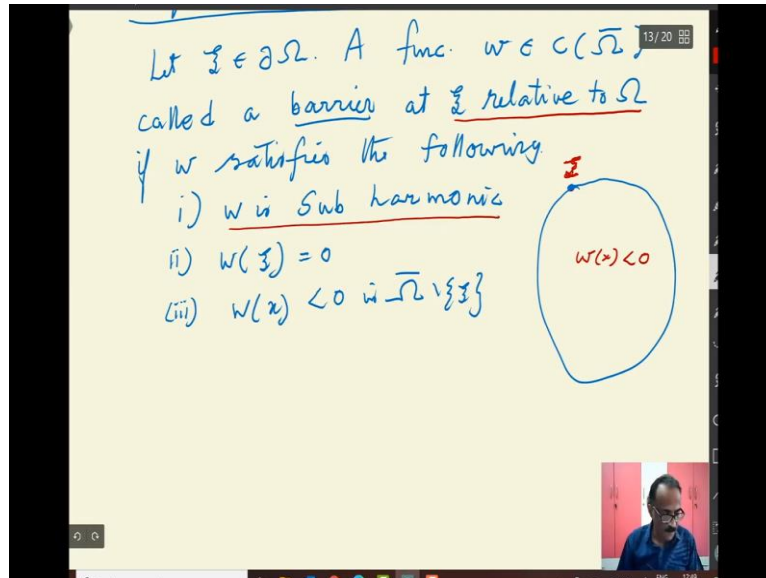 Let ξ ∈ ∂Ω. A func. w ∈ C(Ω̅)
13/20
called a barrier at ξ relative to Ω
if w satisfies the following.
i) w is Sub harmonic
ii) w(ξ) = 0
(iii) w(x) < 0 in Ω̅ \ {ξ}
ξ
w(x) < 0
ENG 17:49